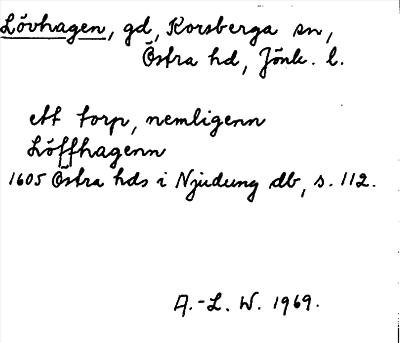 Lövhagen, gd, Korsberga sn,
Östra hd, Jönk. l.
ett torp, nemligenn
Löffhagenn
1605 Östra hds i Njudung db, s. 112.
A.-L. W. 1969.